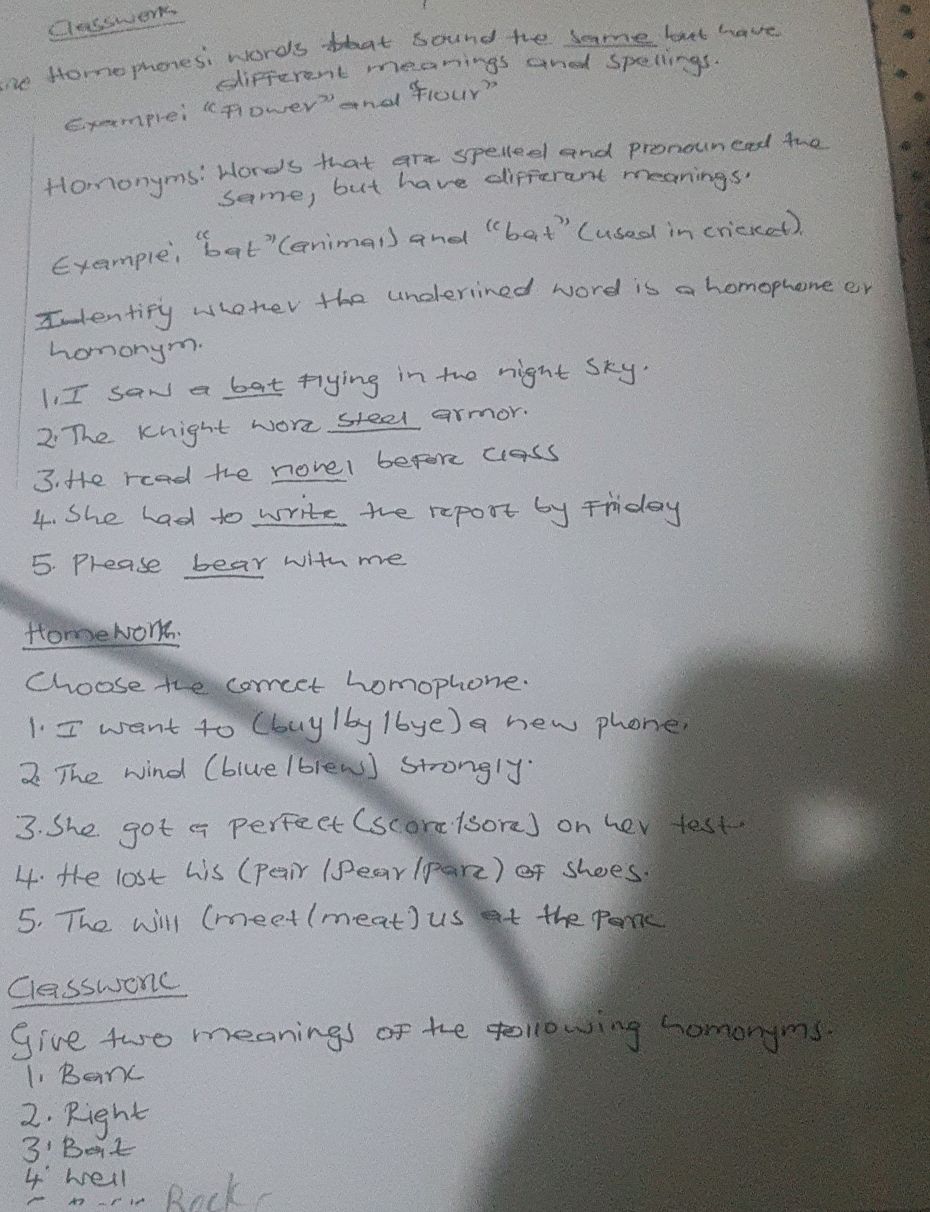 Classwork
Homophones: words that sound the same but have
different meanings and spellings.
Example: "Flower" and "Flour"
Homonyms: Words that are spelled and pronounced the
same, but have different meanings.
Example: "bat" (animal) and "bat" (used in cricket).
Identify whether the underlined word is a homophone or
homonym.
1. I saw a bat flying in the night sky.
2. The Knight wore steel armor.
3. He read the novel before class
4. She had to write the report by Friday
5. Please bear with me
Homework.
Choose the correct homophone.
1. I want to (buy/by/bye) a new phone.
2. The wind (blue/blew) strongly.
3. She got a perfect (score/sore) on her test.
4. He lost his (pair/pear/pare) of shoes.
5. The will (meet/meat) us at the park
Classwork
Give two meanings of the following homonyms.
1. Bank
2. Right
3. Bat
4. Well
Rock